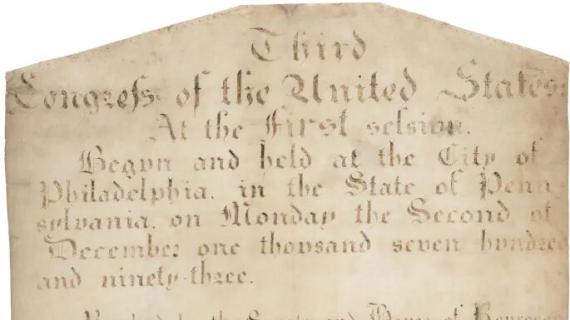 Third
Congreſs of the United States:
At the first seſsion.
Begun and held at the City of
Philadelphia, in the State of Penn
sylvania, on Monday the Second of
December one thousand seven hundred
and ninety-three.
Resolved by the Senate and House of